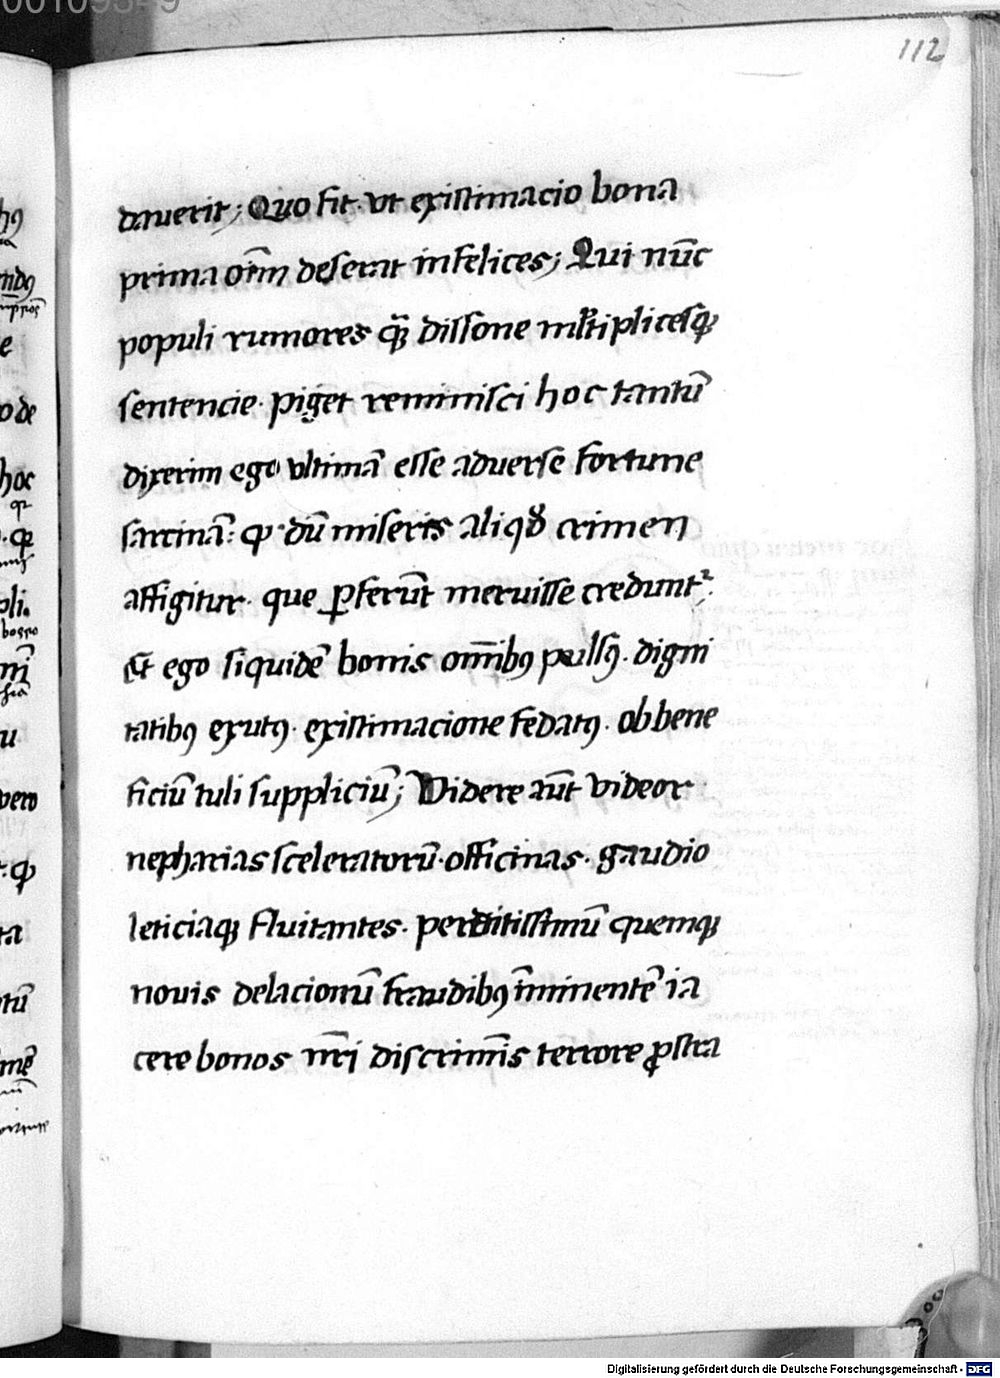 00109349
112
dauerit; Quo fit· vt existimacio bona
prima om̄m deserat infelices; Qui nūc
populi rumores q̄ȝ dissone ml̄tiplicesqȝ
sentencie· piget reminisci hoc tantū
dixerim ego vltimā esse aduerse fortune
sarcinā: ꝙ dū miseris aliqđ crimen
affigitur· que ꝑferūt meruisse credunt᷑·
Et ego siquidē bonis om̄ibꝰ pulsꝰ· digni
tatibꝰ exutꝰ· existimacione fedatꝰ· ob bene
ficiū tuli suppliciū; Videre aūt videor
nepharias sceleratorū· officinas· gaudio
leticiaqȝ fluitantes· perditissimū quemqȝ
nouis delacionū fraudibꝰ īminentē ia
cere bonos nr̄i discrimīs terrore ꝓstra
hoc
Digitalisierung gefördert durch die Deutsche Forschungsgemeinschaft - DFG